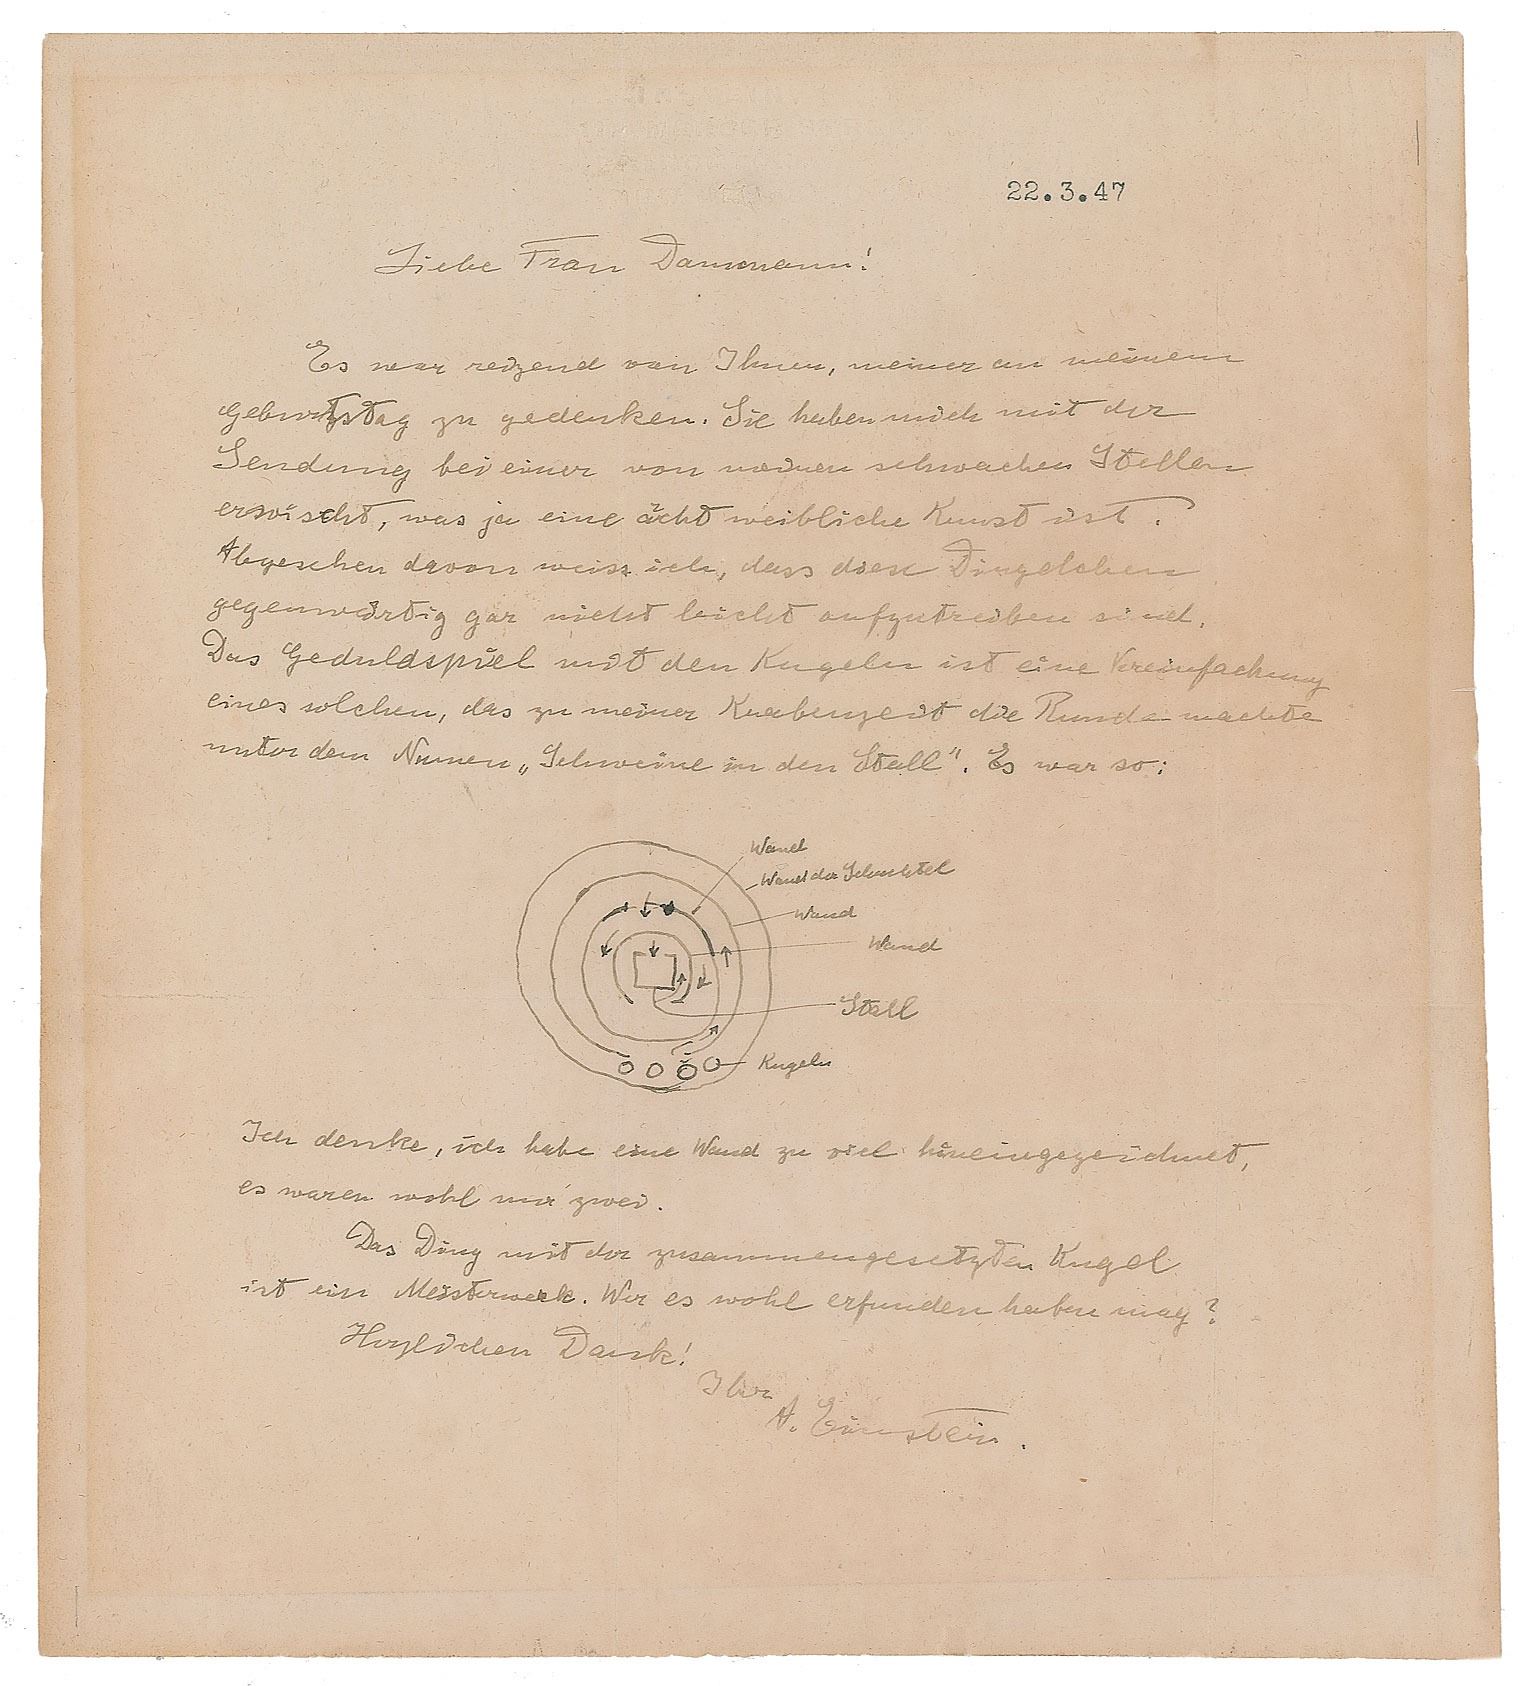 22.3.47
Liebe Frau Dammann!
Es war reizend von Ihnen, meiner an meinem
Geburtstag zu gedenken. Sie haben mich mit der
Sendung bei einer von meinen schwachen Stellen
erwischt, was ja eine ächt weibliche Kunst ist.
Abgesehen davon weiss ich, dass diese Dingelchen
gegenwärtig gar nicht leicht aufzutreiben sind.
Das Geduldspiel mit den Kugeln ist eine Vereinfachung
eines solchen, das zu meiner Knabenzeit die Runde machte
unter dem Namen „Schweine in den Stall". Es war so:
Wand
Wand der Schachtel
Wand
Wand
Stall
Kugeln
Ich denke, ich habe eine Wand zu viel hineingezeichnet,
es waren wohl nur zwei.
Das Ding mit der zusammengesetzten Kugel
ist ein Meisterwerk. Wer es wohl erfunden haben mag?
Herzlichen Dank!
Ihr
A. Einstein.